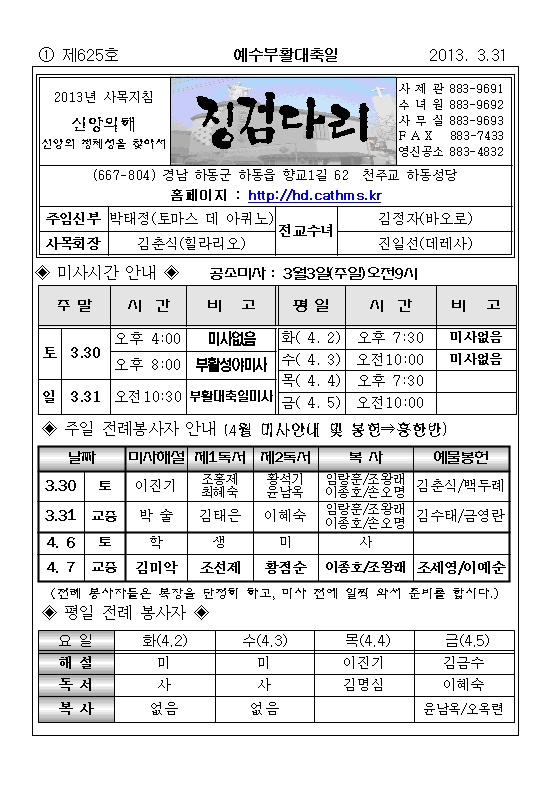 ① 제625호 예수부활대축일 2013. 3.31
2013년 사목지침
신앙의해
신앙의 정체성을 찾아서
징검다리
사 제 관 883-9691
수 녀 원 883-9692
사 무 실 883-9693
F A X 883-7433
영신공소 883-4832
(667-804) 경남 하동군 하동읍 향교1길 62 천주교 하동성당
홈페이지 : http://hd.cathms.kr
주임신부 박태정(토마스 데 아퀴노) 전교수녀 김정자(바오로)
사목회장 김춘식(힐라리오) 진일선(데레사)
◈ 미사시간 안내 ◈ 공소미사 : 3월3일(주일)오전9시
주 말 시 간 비 고 평 일 시 간 비 고
토 3.30 오후 4:00 미사없음 화( 4. 2) 오후 7:30 미사없음
오후 8:00 부활성야미사 수( 4. 3) 오전10:00 미사없음
목( 4. 4) 오후 7:30
일 3.31 오전10:30 부활대축일미사 금( 4. 5) 오전10:00
◈ 주일 전례봉사자 안내 (4월 미사안내 및 봉헌⇒흥한반)
날짜 미사해설 제1독서 제2독서 복 사 예물봉헌
3.30 토 이진기 조홍제 최혜숙 황석기 윤남옥 임랑훈/조왕래 이종호/손오명 김춘식/백두례
3.31 교중 박 술 김태은 이혜숙 임랑훈/조왕래 이종호/손오명 김수태/금영란
4. 6 토 학 생 미 사
4. 7 교중 김미악 조선제 황점순 이종호/조왕래 조세영/이예순
(전례 봉사자들은 복장을 단정히 하고, 미사 전에 일찍 와서 준비를 합시다.)
◈ 평일 전례 봉사자 ◈
요 일 화(4.2) 수(4.3) 목(4.4) 금(4.5)
해 설 미 미 이진기 김금수
독 서 사 사 김명심 이혜숙
복 사 없음 없음 윤남옥/오옥련